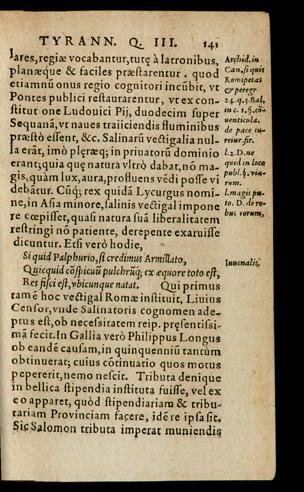 TYRANN. Q. III. 141
lares, regiæ vocabantur, tutę à latronibus,
planæque & faciles præstarentur, quod
etiamnū onus regio cognitori incūbit, vt
Pontes publici restaurarentur, vt ex con-
stitutione Ludouici Pij, duodecim super
Sequanā, vt naues traiiciendis fluminibus
præstò essent, &c. Salinarū vectigalia nul-
la erāt, imò plęræq; in priuatorū dominio
erant; quia quę natura vltrò dabat, nō ma-
gis, quàm lux, aura, profluens vēdi posse vi
debātur. Cūq; rex quidā Lycurgus nomi-
ne, in Asia minore, salinis vectigal impone
re cœpisset, quasi natura suā liberalitatem
restringi nō patiente, derepente exaruisse
dicuntur. Etsi verò hodie,
Si quid Palphurio, si credimus Armillato,
Quicquid cōspicuū pulchrūq; ex æquore toto est,
Res fisci est, vbicunque natat. Qui primus
tamē hoc vectigal Romæ instituit, Liuius
Censor, vnde Salinatoris cognomen ade-
ptus est, ob necessitatem reip. pręsentissi-
mā fecit. In Gallia verò Philippus Longus
ob eandē causam, in quinquenniū tantùm
obtinuerat; cuius cōtinuatio quos motus
pepererit, nemo nescit. Tributa denique
in bellica stipendia instituta fuisse, vel ex
eo apparet, quòd stipendiariam & tribu-
tariam Prouinciam facere, idē re ipsa sit.
Sic Salomon tributa imperat muniendis
Archid. in
Can. si quit
Romipetas
& peregr
24. q. 3. Bal.
in c. 1. §. cō-
uenticula.
de pace iu-
ret. fir.
l. 2. D. ne
quid in loco
publ. §. via-
rum.
l. magis pu-
to. D. de re-
bus eorum,
Iuuenalis.